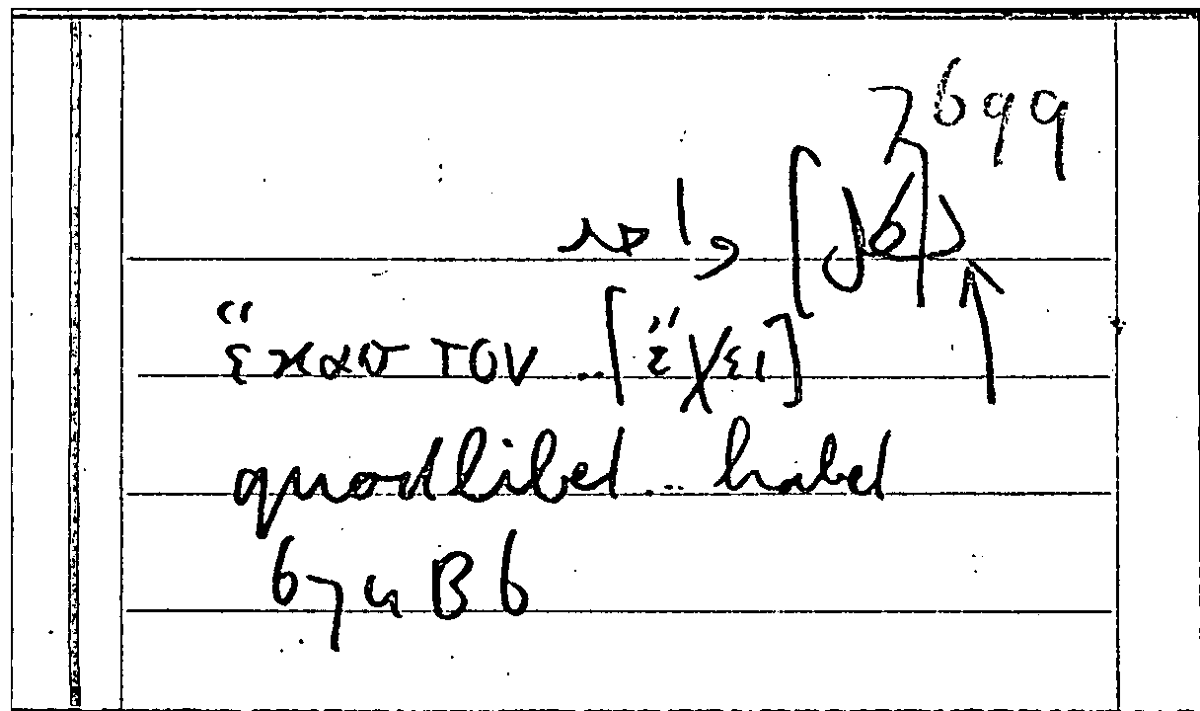 7699
ἕκαστον .. [ἔχει]
quodlibet ... habet
674B6